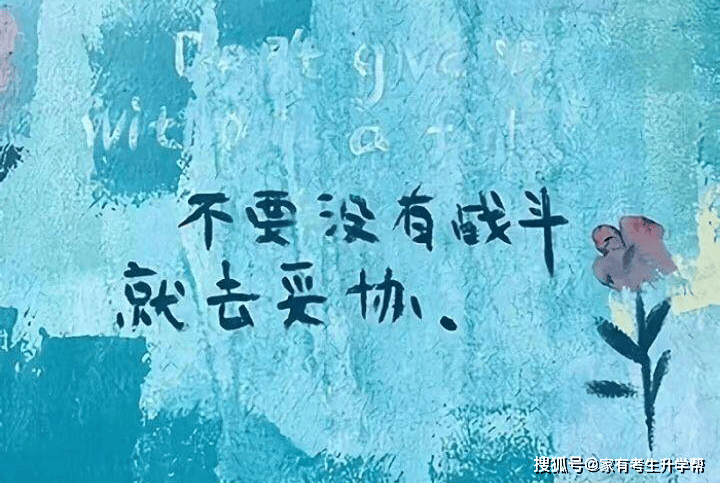 Don't give up
without a
不要没有战斗
就去妥协。
搜狐号@家有考生升学帮